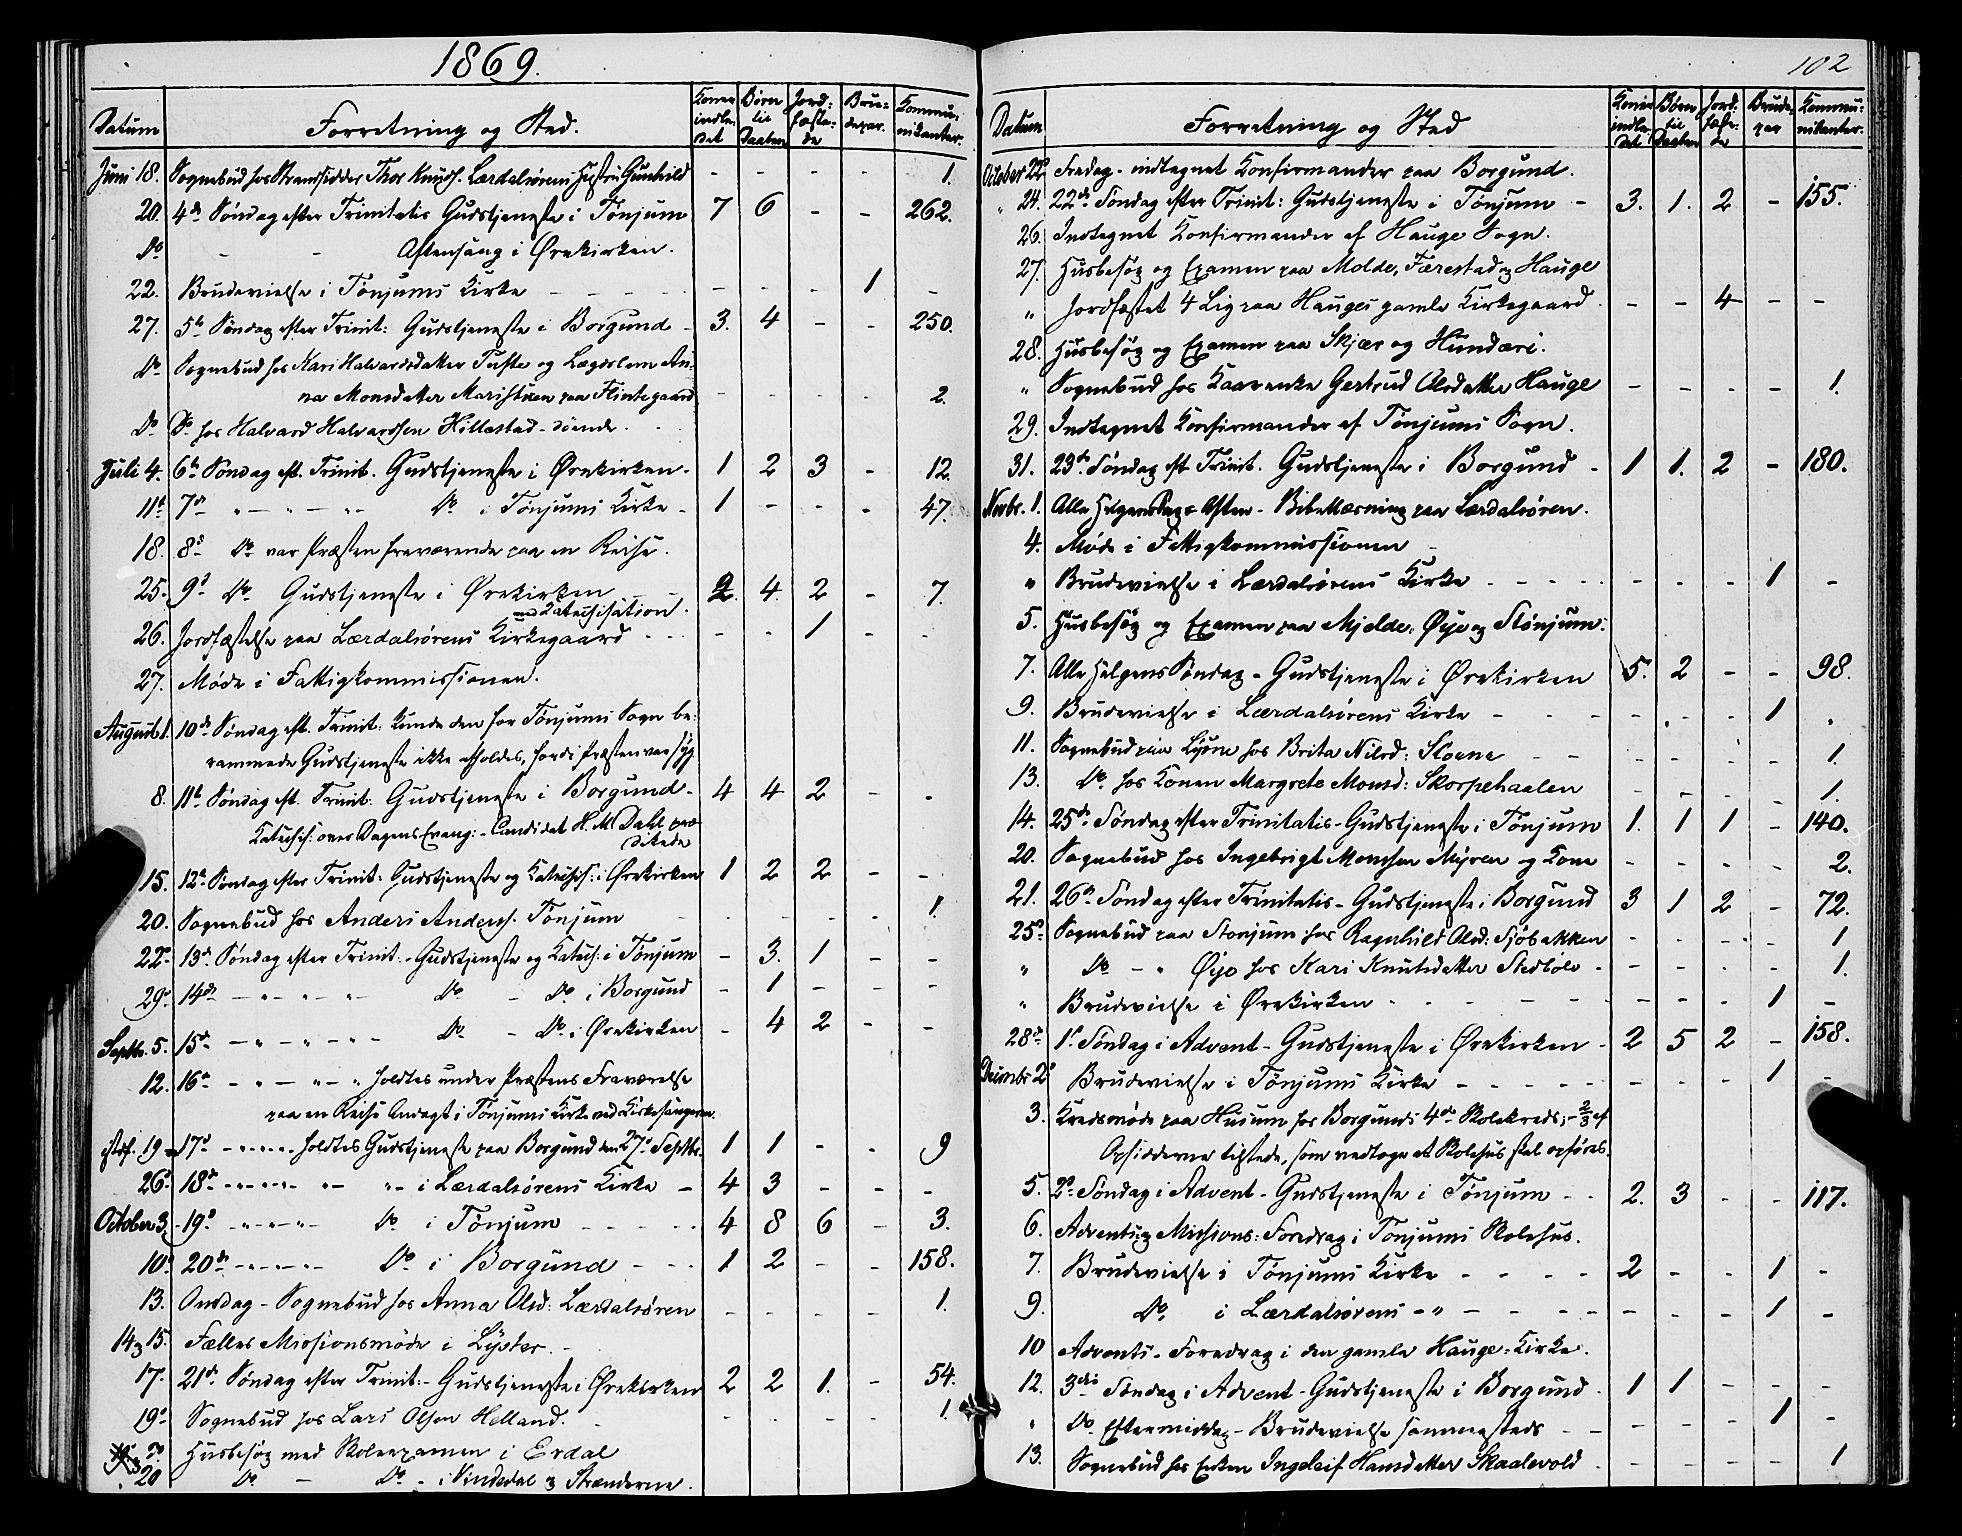 1869.
102
Datum Forretning og Sted. Koner indle- det Børn til Daaben Jord- fæste- de Bru- depar. Kommu- nikanter.
Juni 18. Sognebud hos Strandsidder Thor Knuds. Lærdalsørens Hustru Gunhild - - - - 1.
20. 4de Søndag efter Trinitatis Gudstjeneste i Tønjum 7 6 - - 262.
Do - - Aftensang i Ørekirken.
22. Brudevielse i Tønjums Kirke - - - 1 -
27. 5te Søndag efter Trinit: Gudstjeneste i Borgund - 3. 4 - - 250.
Do Sognebud hos Kari Halvardsdatter Tufte og Lægdslem An-
na Monsdatter Maristuen paa Flintegaard - - - - 2.
Do Do hos Halvard Halvardsen Hillestad - døende.
Juli 4. 6te Søndag eft. Trinit. Gudstjeneste i Ørekirken. 1 2 3 - 12.
11te 7de " - " - " Do i Tønjums Kirke - 1 - - - 47.
18. 8de Do var Præsten fraværende paa en Reise.
25. 9de Do Gudstjeneste i Ørekirken 2. 4. 2 - 7.
med Katechisation.
26. Jordfæstelse paa Lærdalsørens Kirkegaard - - - - 1 - -
27. Møde i Fattigkommissionen.
August 1. 10de Søndag eft. Trinit: kunde den for Tønjums Sogn be-
rammede Gudstjeneste ikke afholdes, fordi Præsten var syg
8. 11te Søndag eft. Trinit: Gudstjeneste i Borgund - 4 4 2 - -
Katechis: over Dagens Evang: - Candidat H. M. Dahl præ-
dikede
15. 12te Søndag efter Trinit: Gudstjeneste og Katechis: i Ørekirken 1 2 2 - -
20. Sognebud hos Anders Anders. Tønjum - - - - 1.
22de 13de Søndag efter Trinit: - Gudstjeneste og Katech: i Tønjum - 3. 1 - -
29de 14de - " - " - " - Do - Do i Borgund - 1 - - -
Septbr. 5. 15de - " - " - " - Do - Do i Ørekirken - 4 2 - -
12. 16de - " - " - " holdtes under Præstens Fraværelse
paa en Reise Andagt i Tønjums Kirke ved Kirkesangeren.
istdf. 19de 17de - " - " - " holdtes Gudstjeneste paa Borgund den 27de Septbr. 1 1 - - 9
26de 18de - " - " - " - " - i Lærdalsørens Kirke - 4 3 - - -
October 3. 19de - " - " - " Do i Tønjum - - - - 4 8 6 - 3.
10. 20de - " - " - Do i Borgund - - - 1 2 - - 158.
13. Onsdag - Sognebud hos Anna Olsd: Lærdalsøren - - - - 1.
14 & 15. Fælles Missionsmøde i Lyster. -
17. 21de Søndag efter Trinit: - Gudstjeneste i Ørekirken 2 2 1. - 54.
19de Sognebud hos Lars Olsen Helland. - - - - 1
Do Husbesøg med Skoleexamen i Erdal
20 Do - Do - i Vindedal og Strænderne.
Datum Forretning og Sted Koner indle- det Børn til Daaben Jord- fæste- de Brude- par Kommu- nikanter.
October 22de Fredag - indtegnet Konfirmander paa Borgund.
" 24. 22de Søndag efter Trinit: Gudstjeneste i Tønjum - 3. 1. 2 - 155.
26. Indtegnet Konfirmander af Hauge Sogn.
27. Husbesøg og Examen paa Molde, Færestad og Hauge
" Jordfæstet 4 Lig paa Hauges gamle Kirkegaard. - - 4 - -
28. Husbesøg og Examen paa Skjær og Hunderi.
" Sognebud hos Kaarenke Gertrud Olsdatter Hauge - - - - 1.
29. Indtegnet Konfirmander af Tønjums Sogn.
31. 23de Søndag eft. Trinit. Gudstjeneste i Borgund - 1 1. 2 - 180.
Novbr. 1. Alle Helgens Dags Aften - Bibellæsning paa Lærdalsøren.
4. Møde i Fattigkommissionen
" Brudevielse i Lærdalsørens Kirke - - - - - - - 1 -
5. Husbesøg og Examen paa Mjelde, Øye og Stønjum.
7. Alle Helgens Søndag - Gudstjeneste i Ørekirken 5. 2 - - 98.
9. Brudevielse i Lærdalsørens Kirke - - - - - - 1 .
11. Sognebud paa Lysne hos Brita Nilsd: Sloene - - - - - - 1.
13. Do hos Konen Margrete Monsd: Skorpehaalen - - - - 1.
14. 25de Søndag efter Trinitatis - Gudstjeneste i Tønjum 1. 1 1 - 140.
20. Sognebud hos Ingebrigt Monsen Myren og Kone - - - - 2.
21. 26de Søndag efter Trinitatis - Gudstjeneste i Borgund 3 1 2 - 72.
25de Sognebud paa Stønjum hos Ragnhild Olsd: Sjøbakken - - - - 1
" Do - " Øye hos Kari Knutsdatter Stedbole - - - - - 1.
" Brudevielse i Ørekirken - - - - - - - - 1 -
28de 1ste Søndag i Advent - Gudstjeneste i Ørekirken - 2 5 2 - 158.
Decembr 2de Brudevielse i Tønjums Kirke - - - - - - - 1 -
3. Kredsmøde paa Husum for Borgunds 4de Skolekreds; - 2/3 af
Opsidderne tilstede, som vedtoge at Skolehus skal opføres.
5. 2den Søndag i Advent - Gudstjeneste i Tønjum - - 2. 3 - - 117.
6. Advents og Missions: Foredrag i Tønjums Skolehus.
7. Brudevielse i Tønjums Kirke - - - - 2 - - 1 -
9. Do i Lærdalsørens - " - - - - - - 1 -
10 Advents - Foredrag i den gamle Hauge-Kirke.
12. 3die Søndag i Advent - Gudstjeneste i Borgund. 1 1 - - -
" Do Eftermiddag - Brudevielse sammesteds - - - - - 1 -
13. Sognebud hos Enken Ingeleif Hansdatter Skaalevold - - - - 1